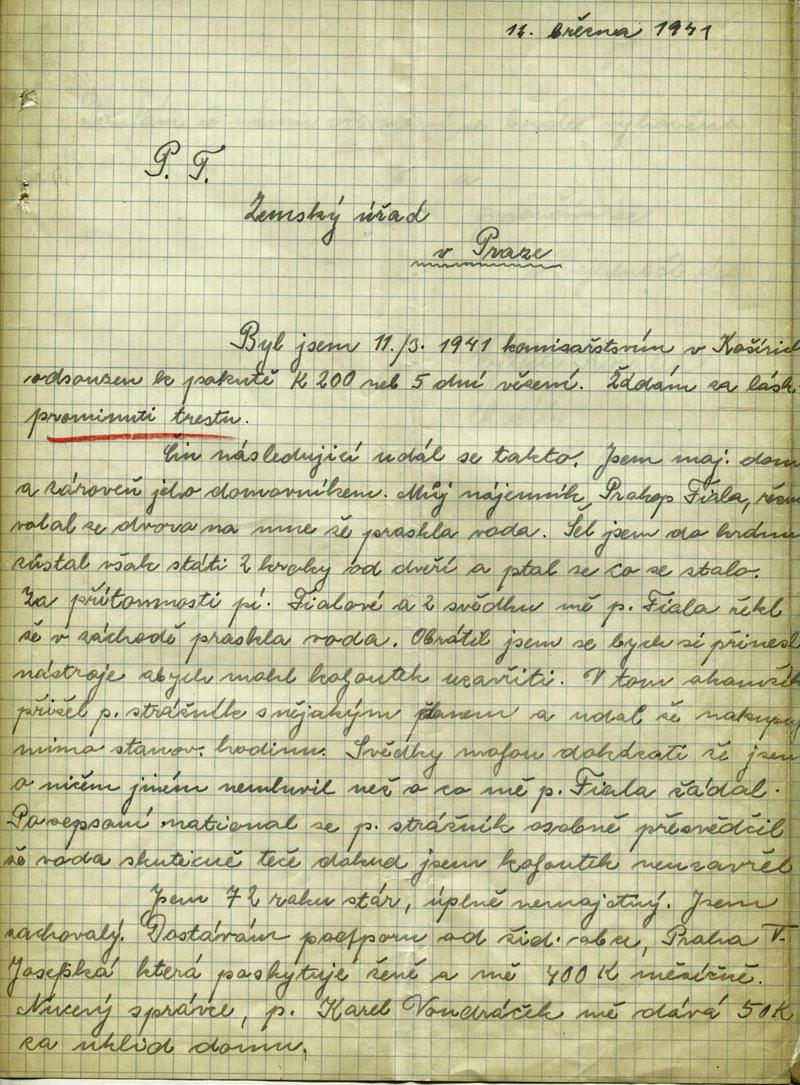 14. března 1941
P. T.
Zemský úřad
v Praze
Byl jsem 11./3. 1941 komisařstvím v Košířích
odsouzen k pokutě K 200 neb 5 dní vězení. Žádám za lásk.
prominutí trestu.
Čin následující udál se takto. Jsem maj. domu
a zároveň jeho domovníkem. Můj nájemník, Prokop Fiala,
volal ze dvora na mne že praskla voda. Šel jsem do krámu
zůstal však státi 2 kroky od dveří a ptal se co se stalo.
Za přítomnosti pí. Fialové a 2 svědku mě p. Fiala řekl
že v záchodě praskla voda. Obrátil jsem se bych si přinesl
nástroje abych mohl kohoutek uzavříti. V tom okamžik
přišel p. strážník s nějakým pánem a udal že nakupuj
mimo stanov. hodinu. Svědky mohou dokázati že jsem
o ničem jiném nemluvil než o co mě p. Fiala žádal.
Po sepsaní national se p. strážník osobně přesvědčil
že voda skutečně teče dokud jsem kohoutek neuzavřel
Jsem 72 roku stár, úplně nemajetný. Jsem
zachovalý. Dostávám podporu od žid. obce, Praha V.
Josefská která poskytuje ženě a mě 400 K měsíčně.
Nucený správce, p. Karel Vondráček mě dává 50 K
za uklid domu.